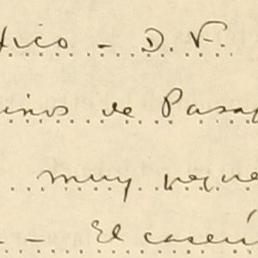 xico - D. F.
inos de Pasa
muy peque
- El caserí